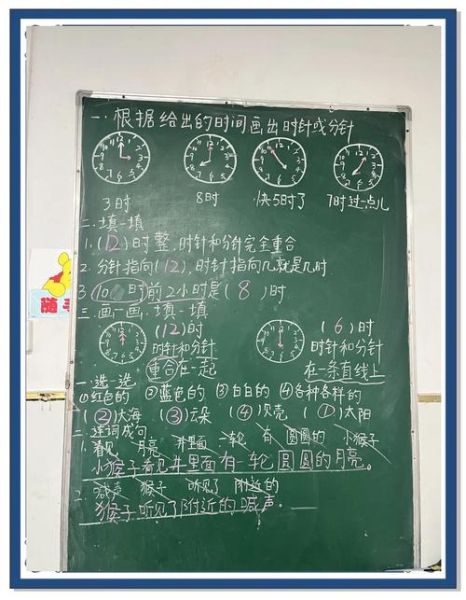 一.根据给出的时间画出时针或分针
3时 8时 快5时了 7时过一点儿
二.填一填
1.(12)时整,时针和分针完全重合
2.分针指向(12),时针指向几就是几时
3.10时前2小时是(8)时
三.画一画,填一填
(12)时 (6)时
时针和分针 时针和分针
重合在一起 在一条直线上
一.选一选
①红色的 ②蓝色的 ③白白的 ④各种各样的
(②)大海 (③)云朵 (④)贝壳 (①)太阳
二.连词成句
1.看见 月亮 井里面 一轮 有 圆圆的 小猴子
小猴子看见井里面有一轮圆圆的月亮。
2.喊声 猴子 听见了 附近的
猴子听见了附近的喊声.
随手